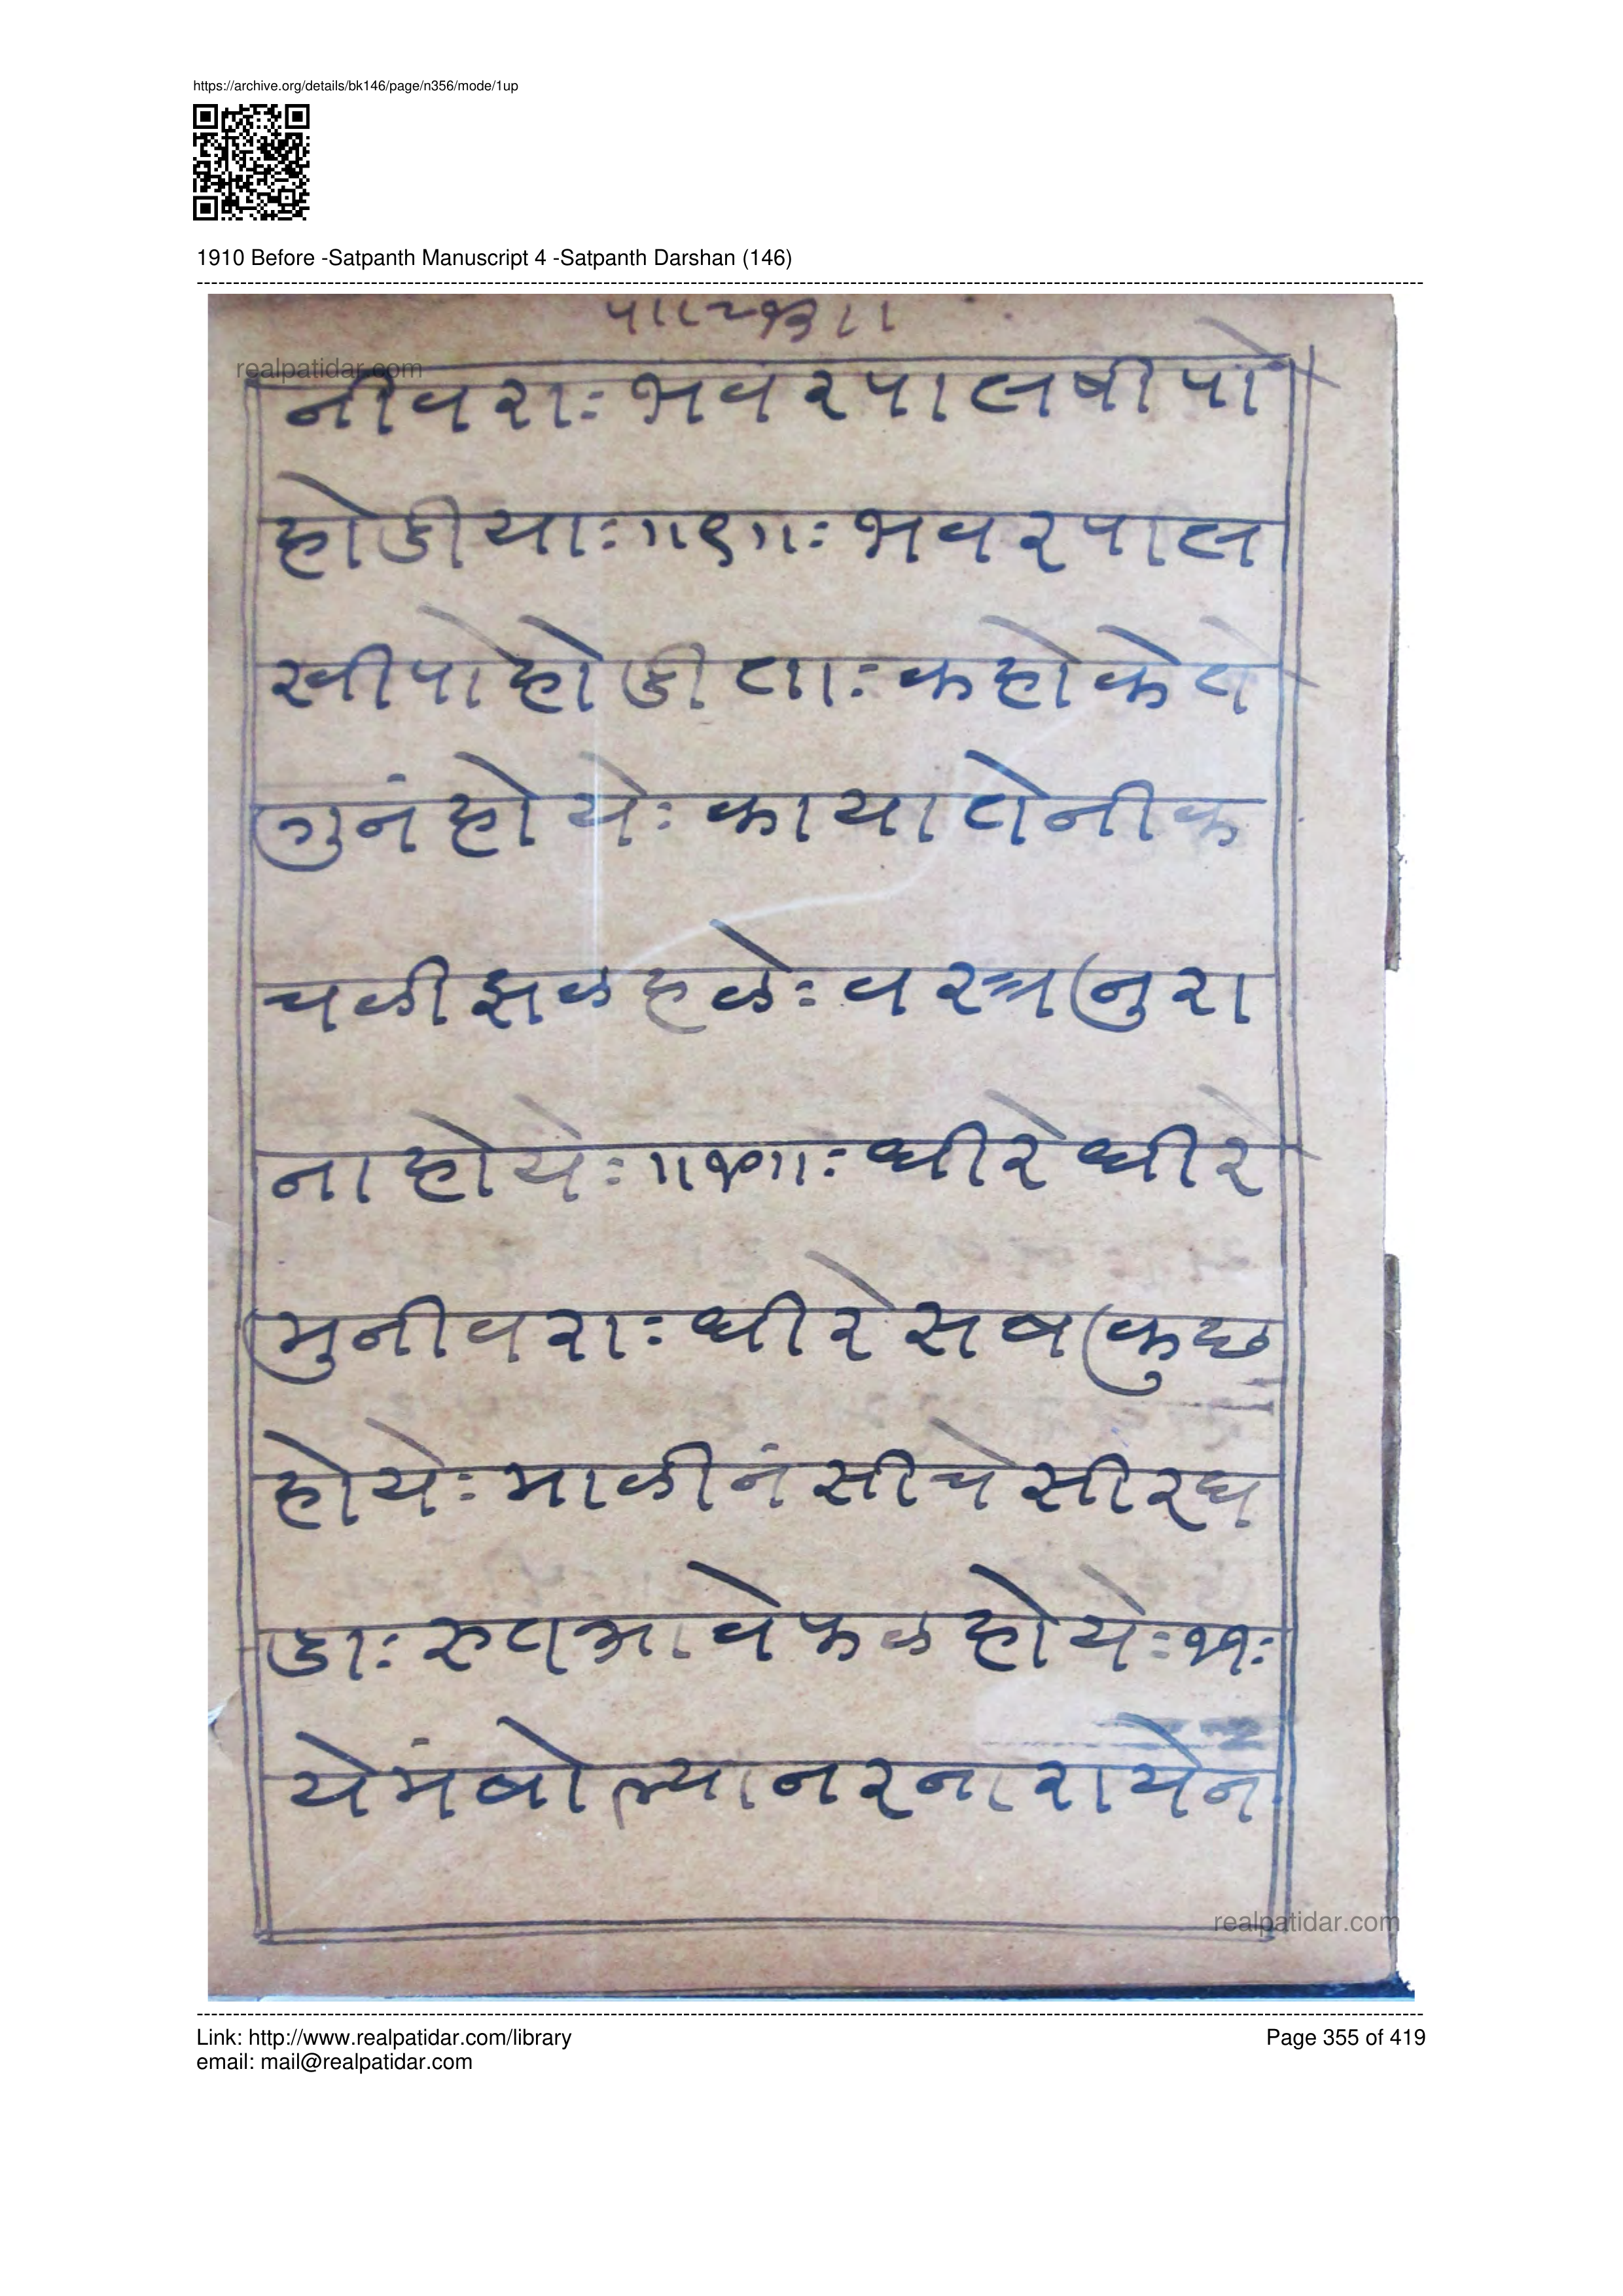 https://archive.org/details/bk146/page/n356/mode/1up
1910 Before -Satpanth Manuscript 4 -Satpanth Darshan (146)
realpatidar.com
नीवराः भवरपालषीपो
होडीयाः॥९॥ः भवरपाल
खीपोहोडीताः कहोकेते
गुनंहोयेः कायातेनीक
चळीझळहळेः वस्त्रनुरा
नाहोयेः॥१०॥ः धीरेधीरे
मुनीवराः धीरेसबकुछ
होयेः माळीनंसीचेसीरघ
डाः रुतआवेफळहोयेः११ः
येमंबोल्यानरनारायेन
realpatidar.com
Link: http://www.realpatidar.com/library
Page 355 of 419
email: mail@realpatidar.com